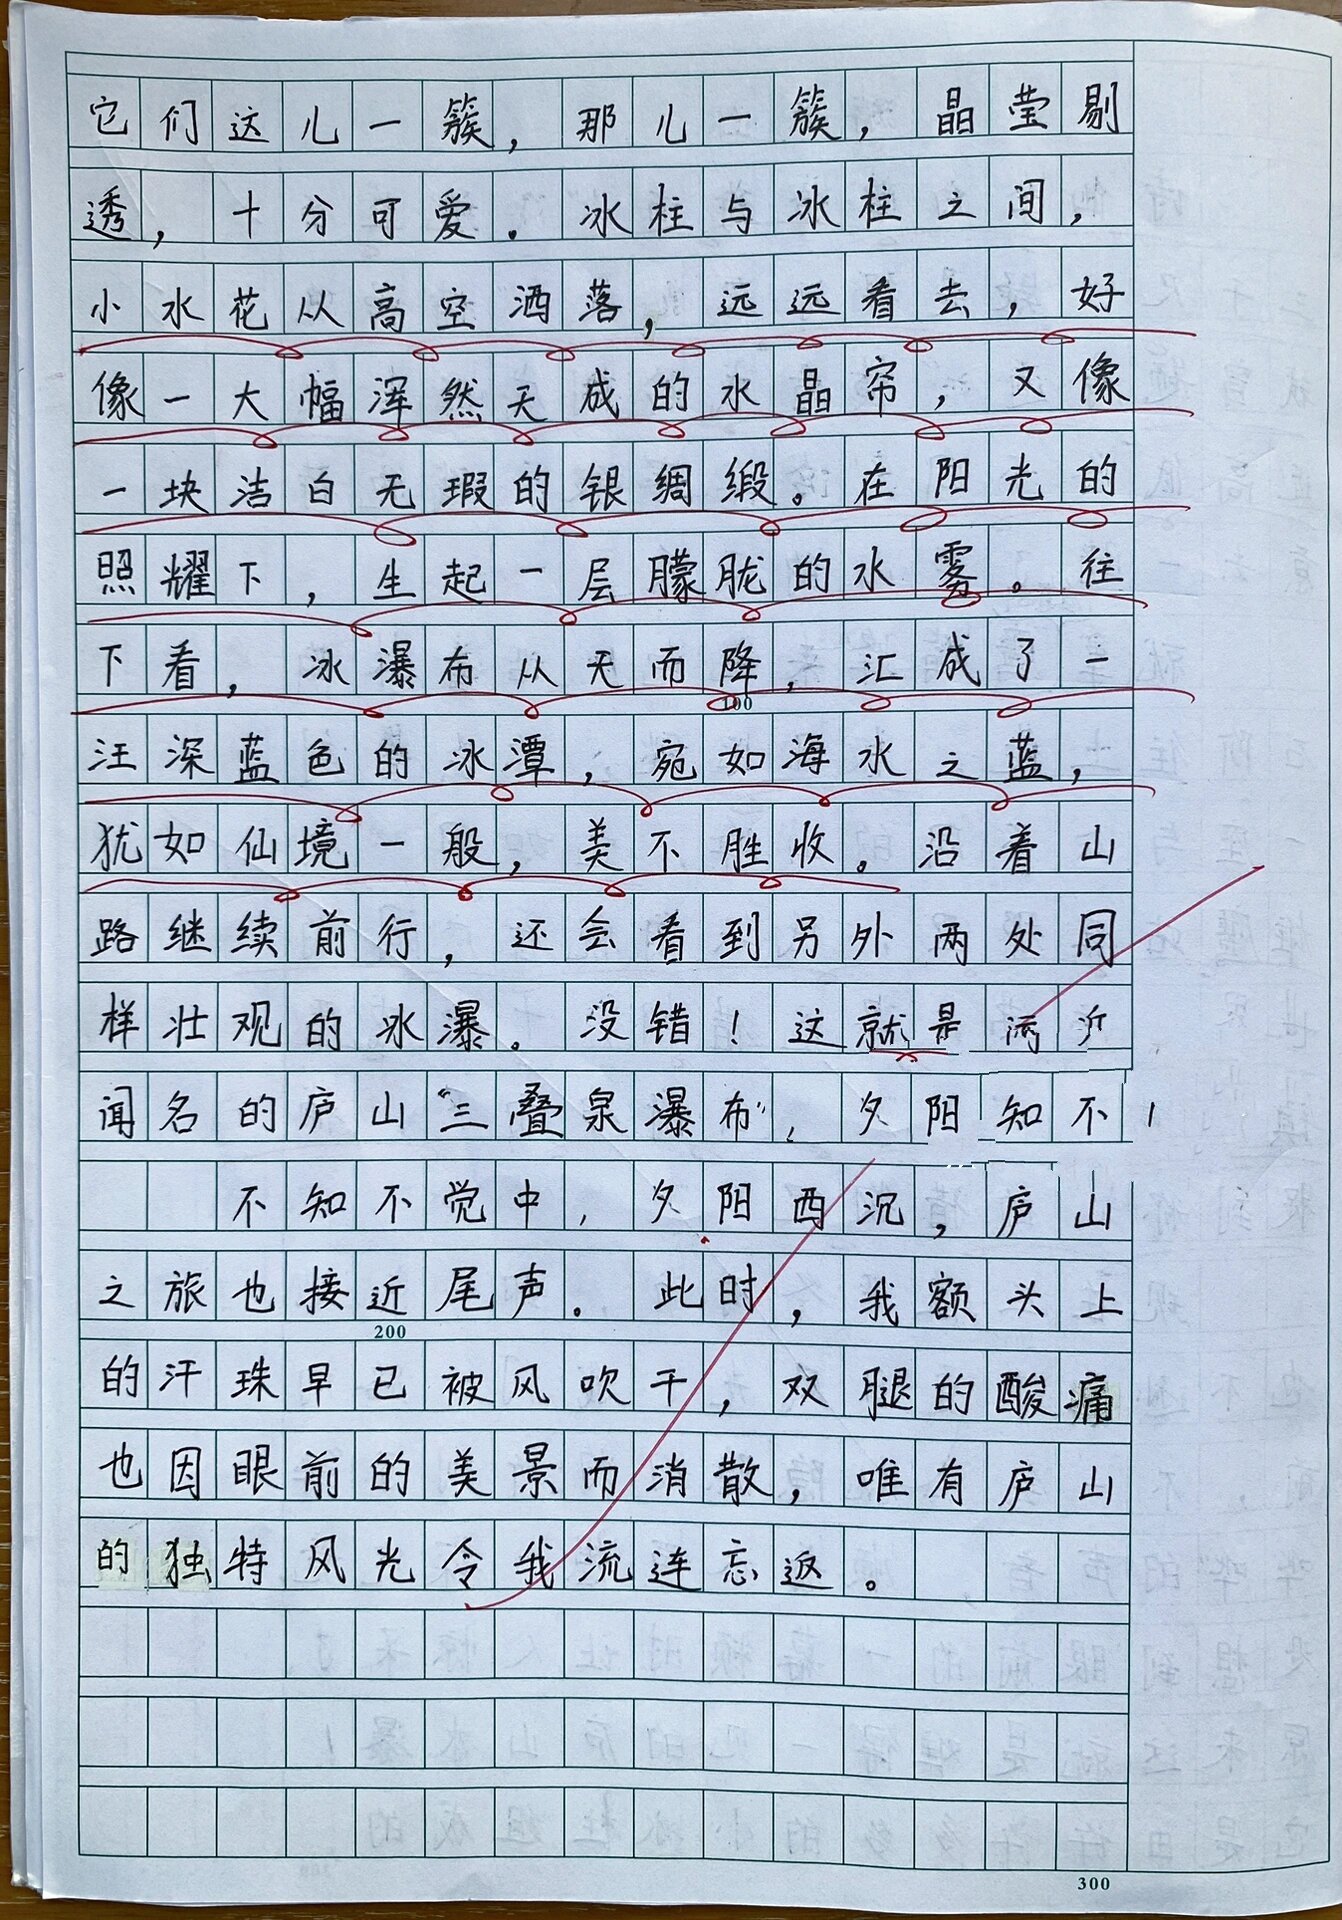 它们这儿一簇，那儿一簇，晶莹剔
透，十分可爱。冰柱与冰柱之间，
小水花从高空洒落，远远看去，好
像一大幅浑然天成的水晶帘，又像
一块洁白无瑕的银绸缎。在阳光的
照耀下，生起一层朦胧的水雾。往
下看，冰瀑布从天而降，汇成了一
100
汪深蓝色的冰潭，宛如海水之蓝，
犹如仙境一般，美不胜收。沿着山
路继续前行，还会看到另外两处同
样壮观的冰瀑。没错！这就是
闻名的庐山“三叠泉瀑布”，夕阳知不
不知不觉中，夕阳西沉，庐山
之旅也接近尾声。此时，我额头上
200
的汗珠早已被风吹干，双腿的酸痛
也因眼前的美景而消散，唯有庐山
的独特风光令我流连忘返。
300